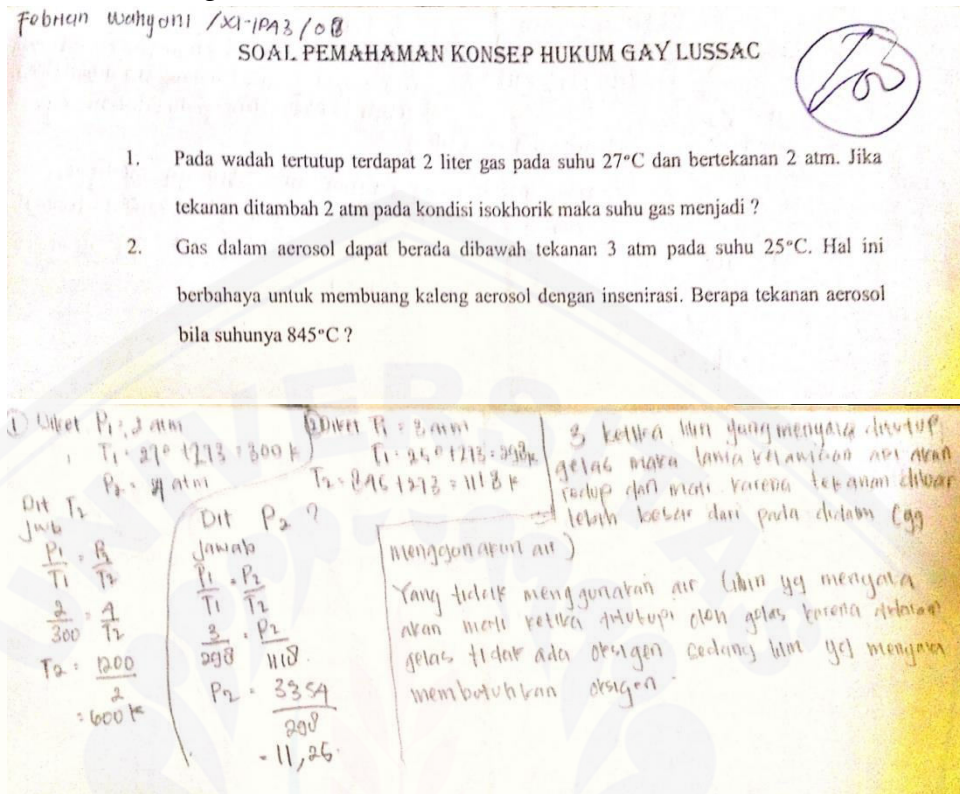 Febrian Wahyoni /XI-IPA3/08
SOAL PEMAHAMAN KONSEP HUKUM GAY LUSSAC
100
1. Pada wadah tertutup terdapat 2 liter gas pada suhu 27°C dan bertekanan 2 atm. Jika
tekanan ditambah 2 atm pada kondisi isokhorik maka suhu gas menjadi ?
2. Gas dalam aerosol dapat berada dibawah tekanan 3 atm pada suhu 25°C. Hal ini
berbahaya untuk membuang kaleng aerosol dengan insenirasi. Berapa tekanan aerosol
bila suhunya 845°C ?
① Diket P1 = 2 atm
T1 = 27° + 273 = 300 k
P2 = 4 atm
Dit T2
jwb
P1/T1 = P2/T2
2/300 = 4/T2
T2 = 1200/2
= 600 k
② Diket P1 = 3 atm
T1 = 25° + 273 = 298 k
T2 = 845 + 273 = 1118 k
Dit P2 ?
Jawab
P1/T1 = P2/T2
3/298 = P2/1118
P2 = 3354/298
= 11,25
3 ketika lilin yang menyala ditutup
gelas maka lama kelamaan api akan
redup dan mati karena tekanan diluar
lebih besar dari pada didalam (yg
menggunakan air)
Yang tidak menggunakan air lilin yg menyala
akan mati ketika ditutupi oleh gelas karena didalam
gelas tidak ada oksigen sedang lilin yg menyala
membutuhkan oksigen